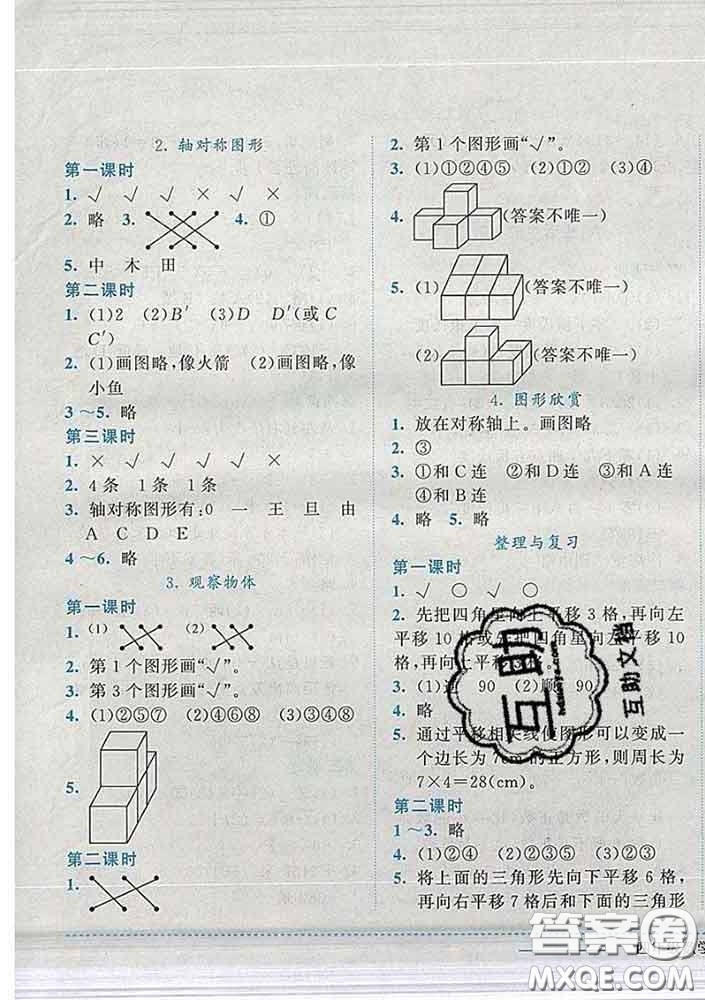 2. 轴对称图形
第一课时
1. √ √ √ × √ ×
2. 略 3. 4. ①
5. 中 木 田
第二课时
1. (1)2 (2)B′ (3)D D′(或C
C′)
2. (1)画图略,像火箭 (2)画图略,像
小鱼
3～5. 略
第三课时
1. × √ √ √ ×
2. 4条 1条 1条
3. 轴对称图形有:0 一 王 旦 由
A C D E
4～6. 略
3. 观察物体
第一课时
1. (1) (2)
2. 第1个图形画“√”。
3. 第3个图形画“√”。
4. (1)②⑤⑦ (2)④⑥⑧ (3)③④⑧
5.
第二课时
1.
2. 第1个图形画“√”。
3. (1)①②④⑤ (2)②③ (3)①④
4. (答案不唯一)
5. (1) (答案不唯一)
(2) (答案不唯一)
4. 图形欣赏
1. 放在对称轴上。画图略
2. ③
3. ①和C连 ②和D连 ③和A连
④和B连
4. 略 5. 略
整理与复习
第一课时
1. √ ○ √ ○
2. 先把四角星向上平移3格,再向左
平移10格或先把四角星向左平移10
格,再向上平移3格。
3. (1) 90 (2)顺 90
4. 略
5. 通过平移相关线使图形可以变成一
个边长为7cm的正方形,则周长为
7×4=28(cm)。
第二课时
1～3. 略
4. (1)②④ (2)②③ (3)②③
5. 将上面的三角形先向下平移6格,再
向右平移7格后和下面的三角形
互助
互助文档
答案圈
MXQE.COM